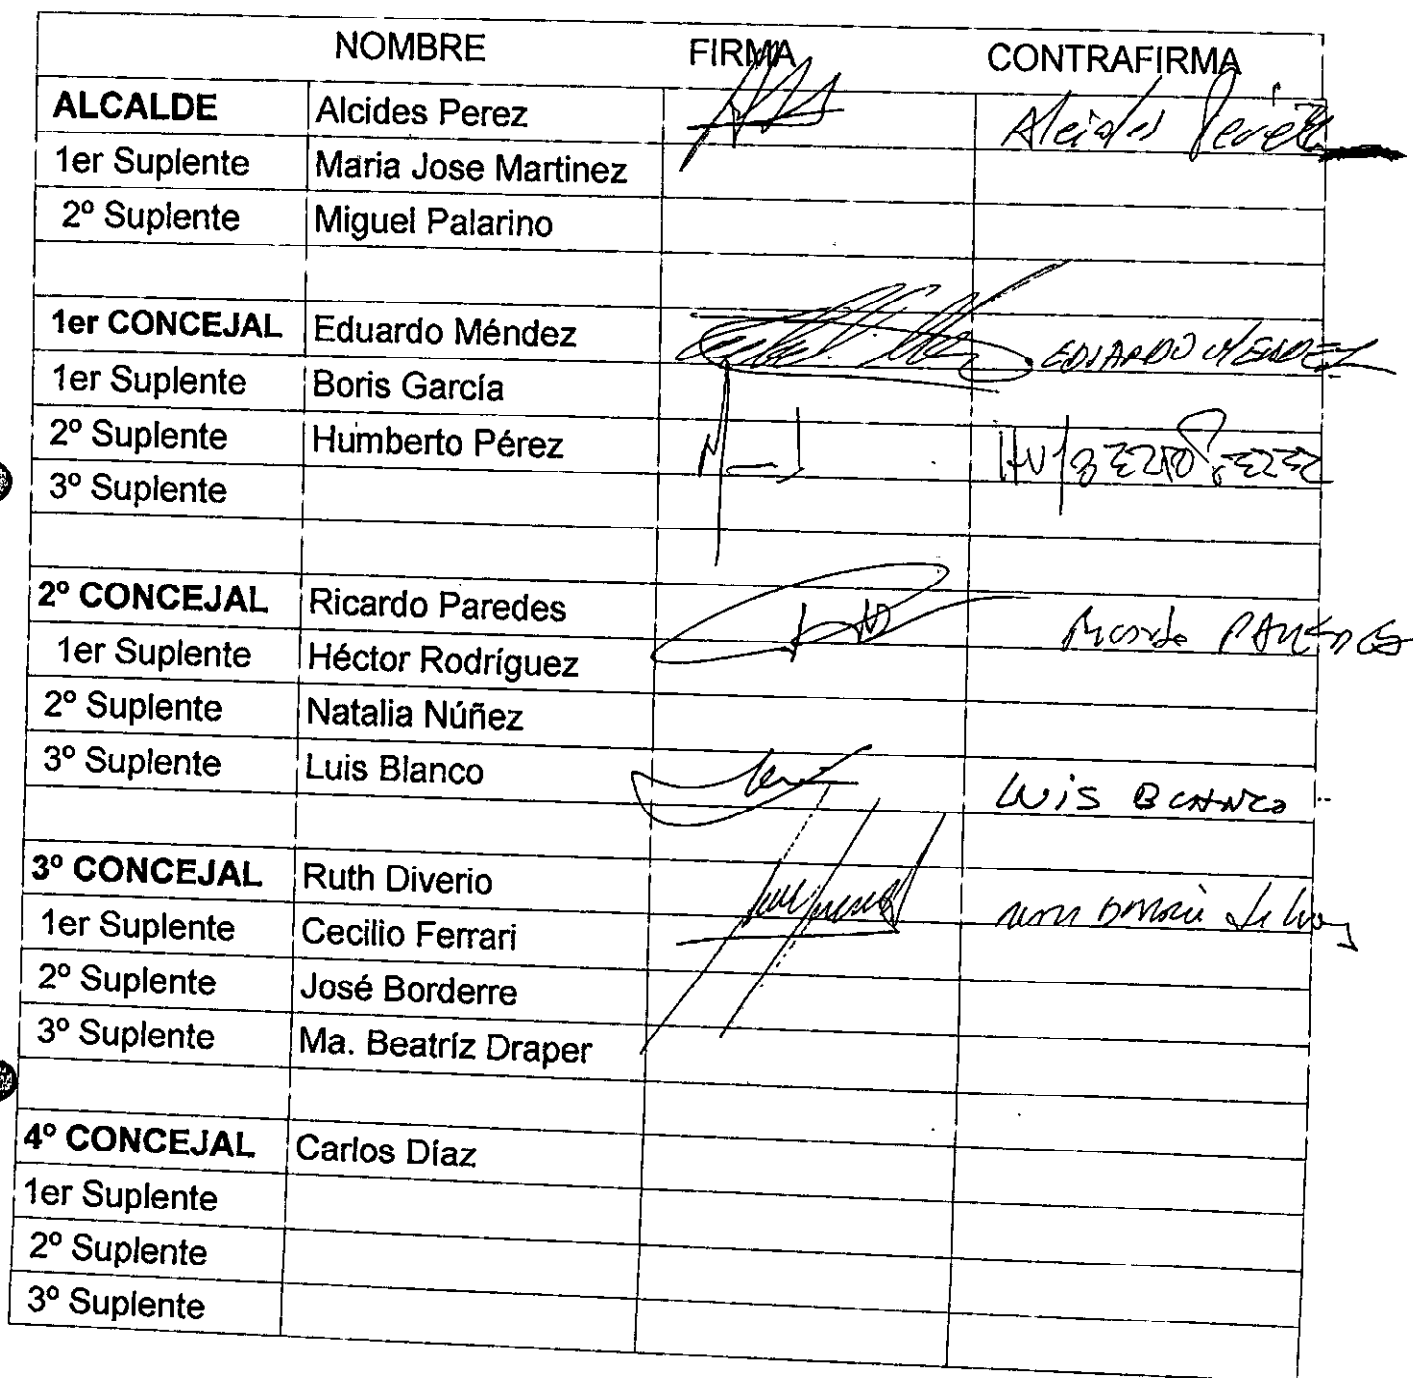 NOMBRE FIRMA CONTRAFIRMA
ALCALDE Alcides Perez Alcides Perez
1er Suplente Maria Jose Martinez
2º Suplente Miguel Palarino
1er CONCEJAL Eduardo Méndez EDUARDO MENDEZ
1er Suplente Boris García
2º Suplente Humberto Pérez HUMBERTO PEREZ
3º Suplente
2º CONCEJAL Ricardo Paredes Ricardo PAREDES
1er Suplente Héctor Rodríguez
2º Suplente Natalia Núñez
3º Suplente Luis Blanco LUIS BLANCO
3º CONCEJAL Ruth Diverio
1er Suplente Cecilio Ferrari
2º Suplente José Borderre
3º Suplente Ma. Beatríz Draper
4º CONCEJAL Carlos Díaz
1er Suplente
2º Suplente
3º Suplente